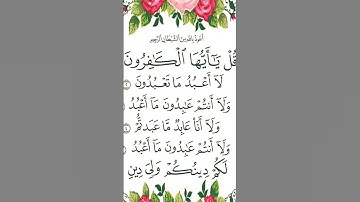 اعوذ بالله من الشيطان الرجيم
قُلْ يَٰٓأَيُّهَا ٱلْكَٰفِرُونَ
لَآ أَعْبُدُ مَا تَعْبُدُونَ
وَلَآ أَنتُمْ عَٰبِدُونَ مَآ أَعْبُدُ
وَلَآ أَنَا۠ عَابِدٌ مَّا عَبَدتُّمْ
وَلَآ أَنتُمْ عَٰبِدُونَ مَآ أَعْبُدُ
لَكُمْ دِينُكُمْ وَلِىَ دِينِ